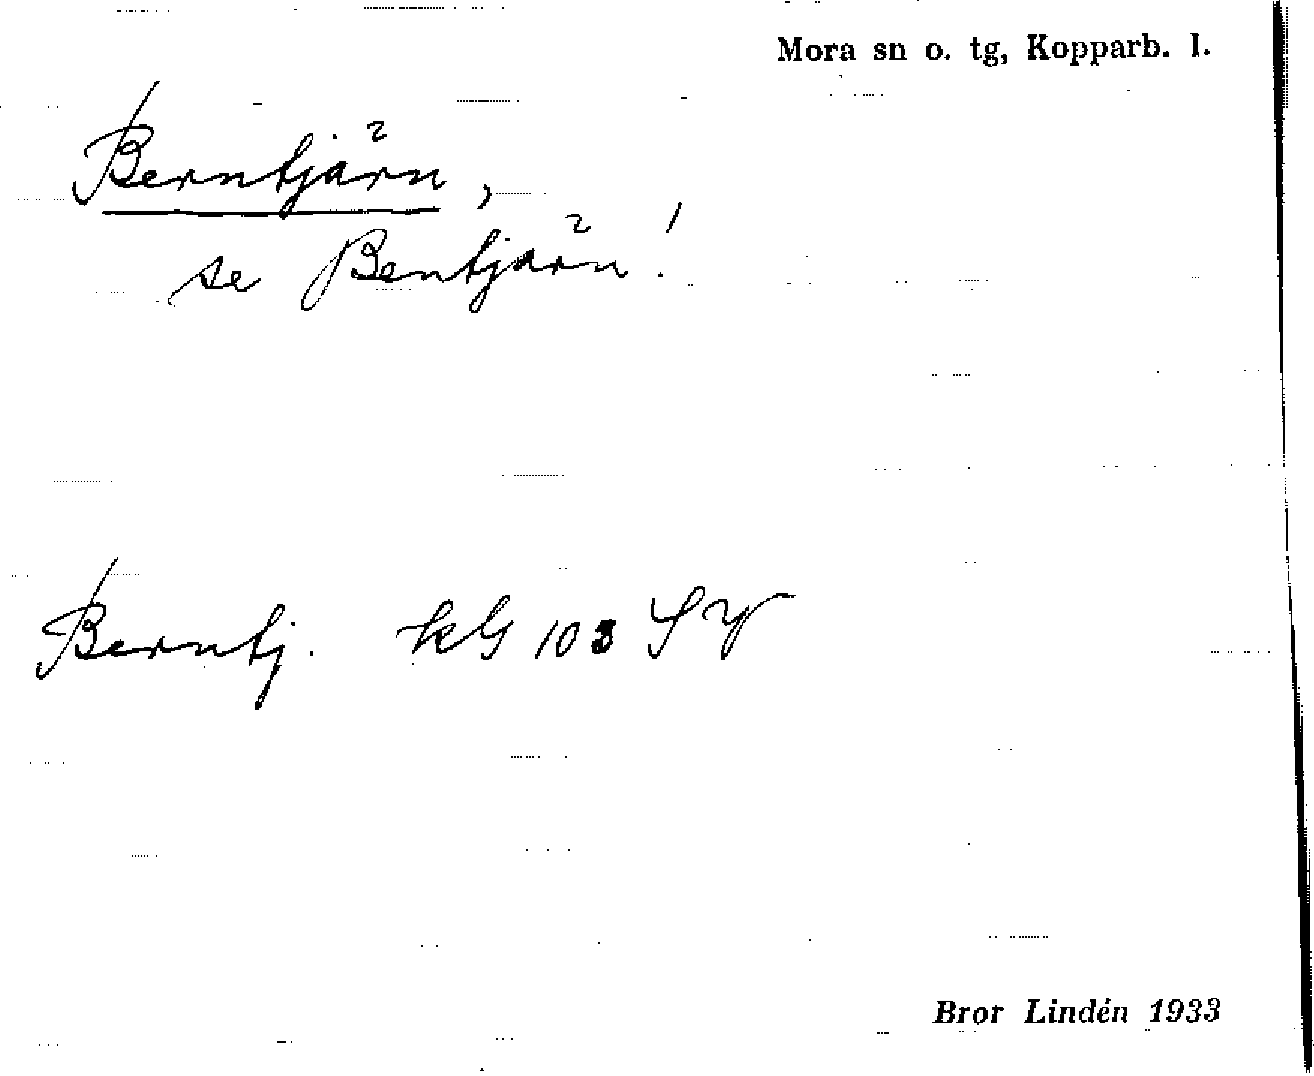 Mora sn o. tg, Kopparb. l.
Berntjärn,
se Bentjärn!
Berntj. kG 103 SV
Bror Lindén 1933